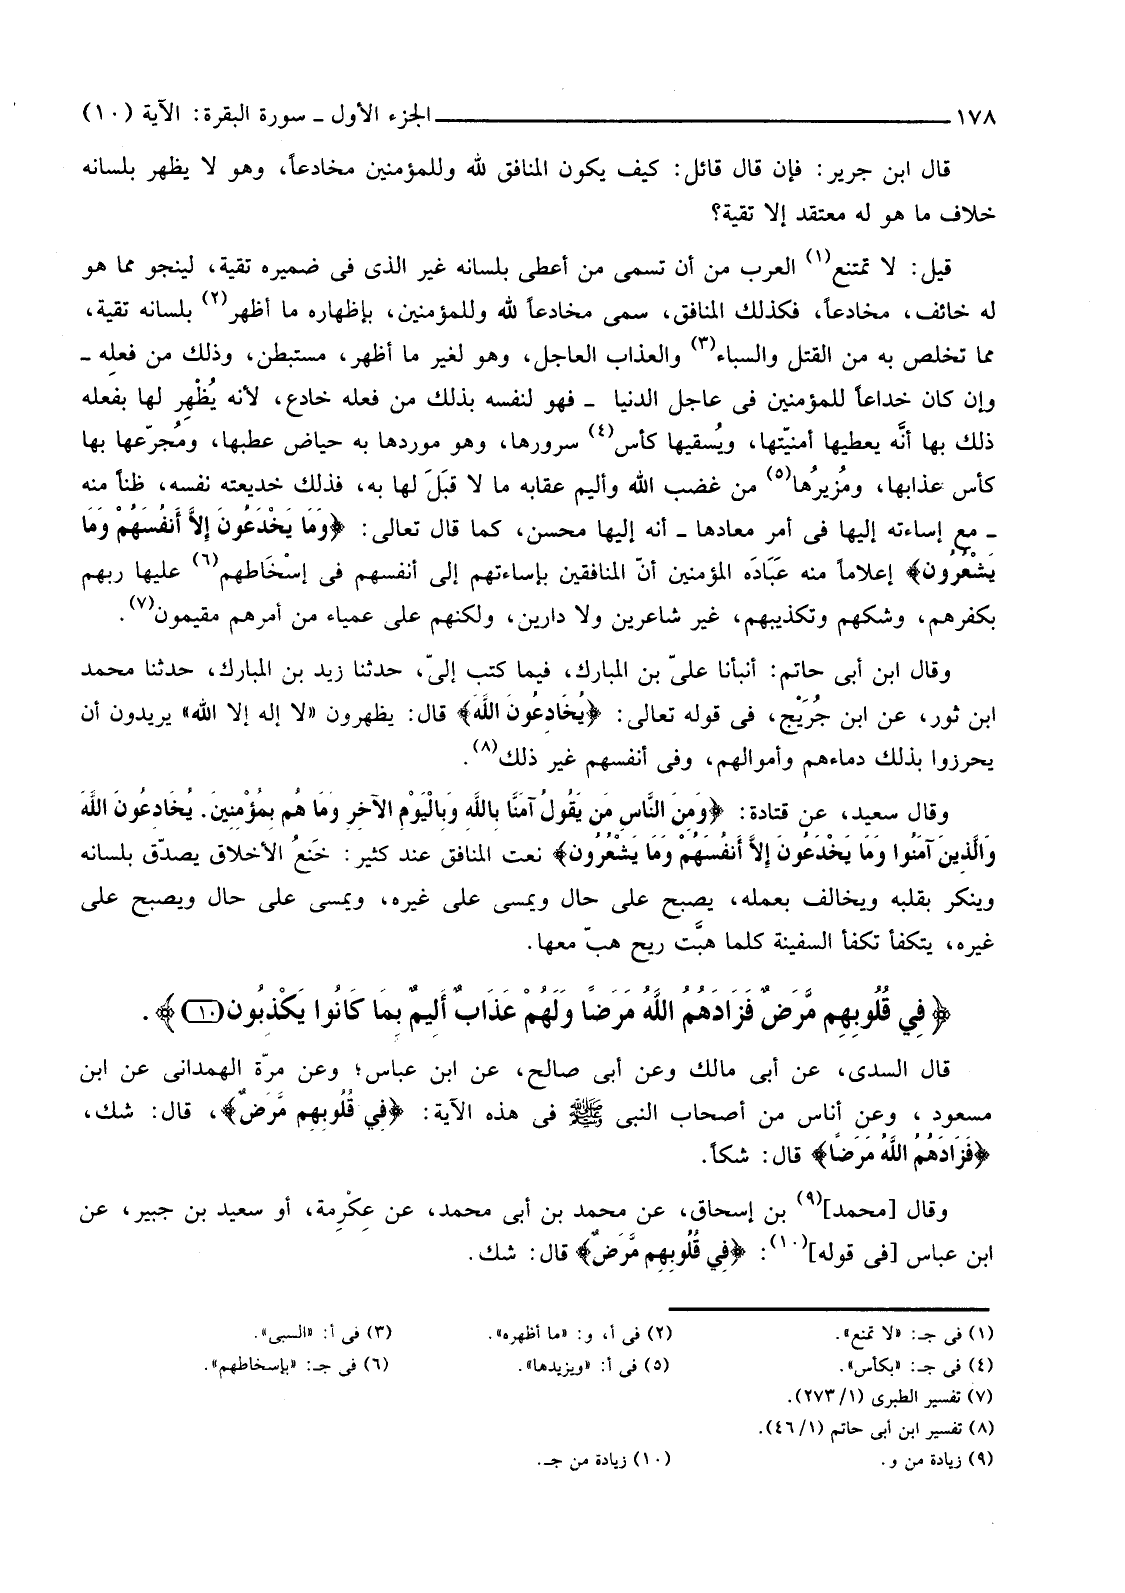 ١٧٨ ــــــــــــــــــــــــــــ الجزء الأول ـ سورة البقرة: الآية (١٠)
قال ابن جرير: فإن قال قائل: كيف يكون المنافق لله وللمؤمنين مخادعاً، وهو لا يظهر بلسانه
خلاف ما هو له معتقد إلا تقية؟
قيل: لا تمتنع(١) العرب من أن تسمى من أعطى بلسانه غير الذى فى ضميره تقية، لينجو مما هو
له خائف، مخادعاً، فكذلك المنافق، سمى مخادعاً لله وللمؤمنين، بإظهاره ما أظهر(٢) بلسانه تقية،
مما تخلص به من القتل والسباء(٣) والعذاب العاجل، وهو لغير ما أظهر، مستبطن، وذلك من فعلِه ـ
وإن كان خداعاً للمؤمنين فى عاجل الدنيا ـ فهو لنفسه بذلك من فعله خادع، لأنه يُظْهِر لها بفعله
ذلك بها أنَّه يعطيها أمنيّتها، ويُسقيها كأس(٤) سرورها، وهو موردها به حياض عطبها، ومُجرّعها بها
كأس عذابها، ومُزيرُها(٥) من غضب الله وأليم عقابه ما لا قبَلَ لها به، فذلك خديعته نفسه، ظناً منه
ـ مع إساءته إليها فى أمر معادها ـ أنه إليها محسن، كما قال تعالى: ﴿وَمَا يَخْدَعُونَ إِلاَّ أَنفُسَهُمْ وَمَا
يَشْعُرُونَ﴾ إعلاماً منه عبَادَه المؤمنين أنّ المنافقين بإساءتهم إلى أنفسهم فى إسْخَاطهم(٦) عليها ربهم
بكفرهم، وشكهم وتكذيبهم، غير شاعرين ولا دارين، ولكنهم على عمياء من أمرهم مقيمون(٧).
وقال ابن أبى حاتم: أنبأنا علىّ بن المبارك، فيما كتب إلىّ، حدثنا زيد بن المبارك، حدثنا محمد
ابن ثور، عن ابن جُرَيْج، فى قوله تعالى: ﴿يُخَادِعُونَ اللَّهَ﴾ قال: يظهرون «لا إله إلا الله» يريدون أن
يحرزوا بذلك دماءهم وأموالهم، وفى أنفسهم غير ذلك(٨).
وقال سعيد، عن قتادة: ﴿وَمِنَ النَّاسِ مَن يَقُولُ آمَنَّا بِاللَّهِ وَبِالْيَوْمِ الآخِرِ وَمَا هُم بِمُؤْمِنِينَ. يُخَادِعُونَ اللَّهَ
وَالَّذِينَ آمَنُوا وَمَا يَخْدَعُونَ إِلاَّ أَنفُسَهُمْ وَمَا يَشْعُرُونَ﴾ نعت المنافق عند كثير: خَنعُ الأخلاق يصدّق بلسانه
وينكر بقلبه ويخالف بعمله، يصبح على حال ويمسى على غيره، ويمسى على حال ويصبح على
غيره، يتكفأ تكفأ السفينة كلما هبَّت ريح هبّ معها.
﴿فِي قُلُوبِهِم مَّرَضٌ فَزَادَهُمُ اللَّهُ مَرَضًا وَلَهُمْ عَذَابٌ أَلِيمٌ بِمَا كَانُوا يَكْذِبُونَ (١٠)﴾.
قال السدى، عن أبى مالك وعن أبى صالح، عن ابن عباس؛ وعن مرّة الهمدانى عن ابن
مسعود ، وعن أناس من أصحاب النبى ﷺ فى هذه الآية: ﴿فِي قُلُوبِهِم مَّرَضٌ﴾، قال: شك،
﴿فَزَادَهُمُ اللَّهُ مَرَضًا﴾ قال: شكاً.
وقال [محمد](٩) بن إسحاق، عن محمد بن أبى محمد، عن عِكْرِمة، أو سعيد بن جبير، عن
ابن عباس [فى قوله](١٠): ﴿فِي قُلُوبِهِم مَّرَضٌ﴾ قال: شك.
(١) فى جـ: «لا تمنع». (٢) فى أ، و: «ما أظهره». (٣) فى أ: «السبى».
(٤) فى جـ: «بكأس». (٥) فى أ: «ويزيدها». (٦) فى جـ: «بإسخاطهم».
(٧) تفسير الطبرى (١/ ٢٧٣).
(٨) تفسير ابن أبى حاتم (١/ ٤٦).
(٩) زيادة من و. (١٠) زيادة من جـ.